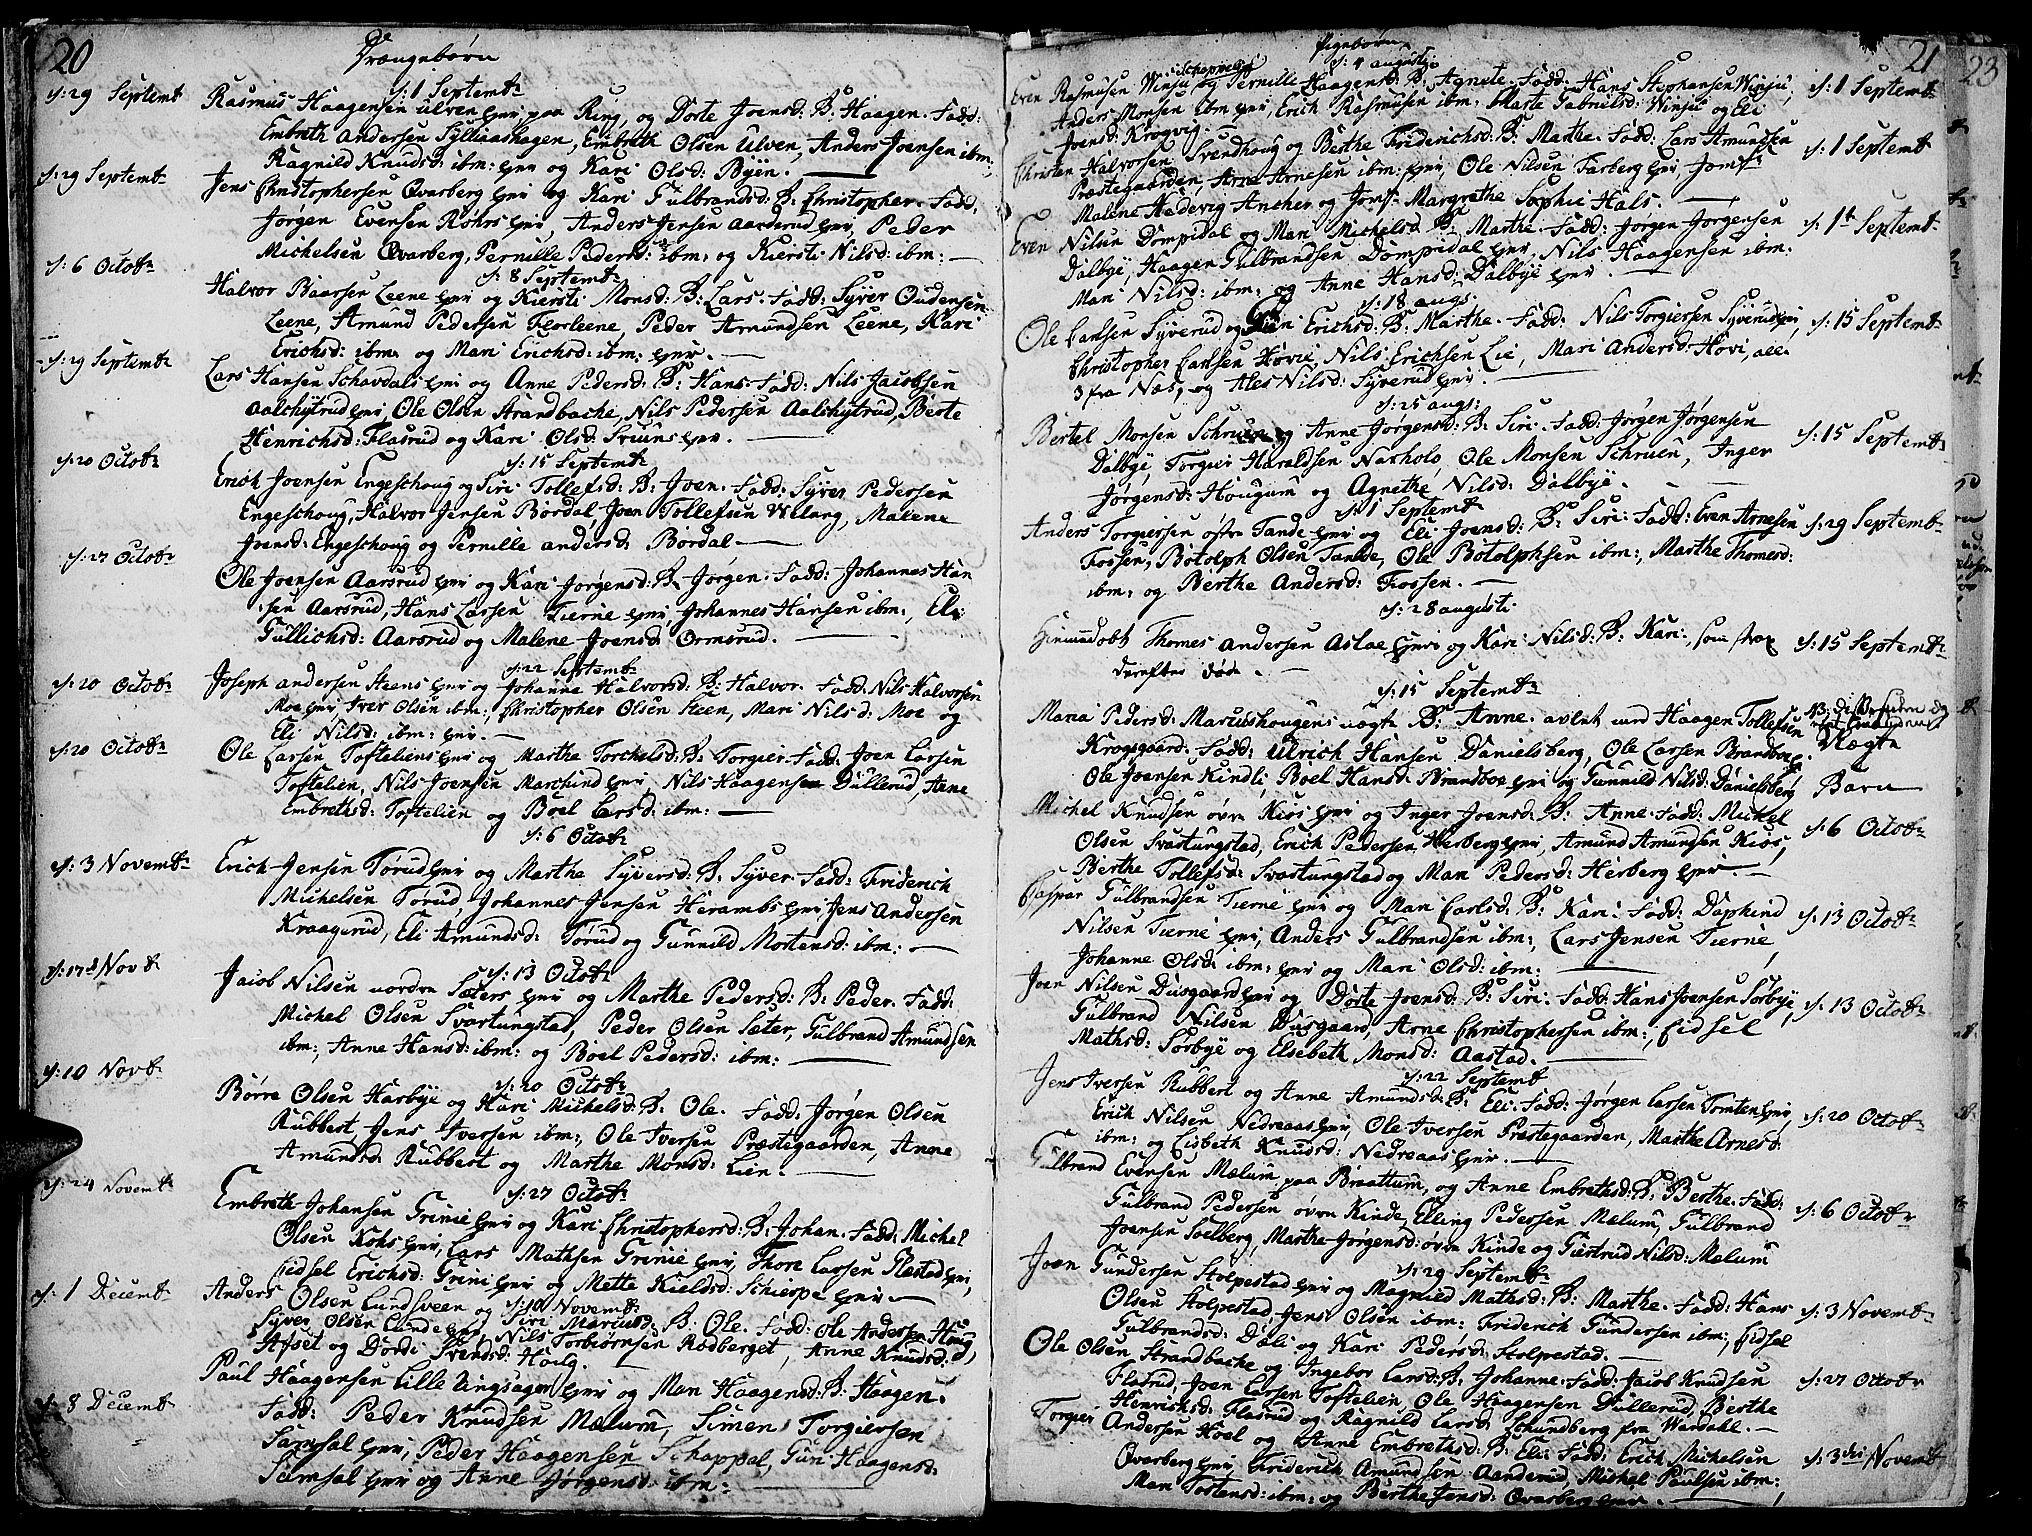 20
Drængebørn
d: 1 Septembr
d: 29 Septembr
Rasmus Haagensen Ulven hmr paa Ring, og Dorte Joensd: B: Haagen. Fadd:
Embreth Andersen Sylliaashagen, Embreth Olsen Ulven, Anders Joensen ibm:
Ragnild Knudsd: ibm: hmr og Kari Olsd: Byen.
d: 29 Septembr
Jens Christophersen Qvarberg hmr og Kari Gulbrandsd: B: Christopher. Fadd:
Jorgen Evensen Röhrs hmr, Anders Jensen Aanderud hmr, Peder
Michelsen Qvarberg, Pernille Pedersd: ibm: og Kiersti Nilsd: ibm:
d: 8 Septembr
d: 6 Octobr
Halvor Baarsen Leene hmr og Kiersti Monsd: B: Lars. Fadd: Syver Oudensen
Leene, Amund Pedersen Florleene, Peder Amundsen Leene, Kari
Erichsd: ibm: og Mari Erichsd: ibm: hmr.
d: 29 Septembr
Lars Hansen Schavdals hmr og Anne Pedersd: B: Hans. Fadd: Nils Jacobsen
Aalchytrud hmr, Ole Olsen Strandbache, Nils Pedersen Aalchytrud, Berte
Henrichsd: Flasrud og Kari Olsd: hmr.
d: 15 Septembr
d: 20 Octobr
Erich Joensen Engeschoug og Siri Tollefsd: B: Joen. Fadd: Syver Pedersen
Engeschoug, Halvor Jensen Børdal, Joen Tollefsen Welang, Malene
Joensd: Engeschoug og Pernille Andersd: Børdal
d: 27 Octobr
Ole Joensen Aarsrud hmr og Kari Jørgensd: B: Jørgen. Fadd: Johannes Han
sen Aarsrud, Hans Larsen Tierne hmr, Johannes Hansen ibm:, Eli
Gullichsd: Aarsrud og Malene Joensd: Ormsrud.
d: 22 Septembr
d: 20 Octobr
Joseph Andersen Steens hmr og Johanne Halvorsd: B: Halvor. Fadd: Nils Halvorsen
Moe hmr, Iver Olsen ibm:, Christopher Olsen Steen, Mari Nilsd: Moe og
Eli Nilsd: ibm: hmr.
d: 20 Octobr
Ole Larsen Toftelien hmr og Marthe Torchelsd: B: Torgier. Fadd: Joen Larsen
Toftelien, Nils Joensen Marchind hmr, Nils Haagensen Dullerud, Anne
Embrethsd: Toftelien og Boel Larsd: ibm:
d: 6 Octobr
d: 3 Novembr
Erich Jensen Tørud hmr og Marthe Syversd: B: Syver. Fadd: Friderich
Michelsen Tørud, Johannes Jensen Herambs hmr, Jens Andersen
Kraagerud, Eli Amundsd: Tørud og Gunnild Mortensd: ibm:
d: 13 Octobr
d: 17d Novbr
Jacob Nilsen nordre Sæters hmr og Marthe Pedersd: B: Peder. Fadd:
Michel Olsen Svartungstad, Peder Olsen Sæter, Gulbrand Amundsen
ibm:, Anne Hansd: ibm: og Boel Pedersd: ibm:
d: 20 Octobr
d: 10 Novbr
Børre Olsen Harbye og Kari Michelsd: B: Ole. Fadd: Jørgen Olsen
Rubbert, Jens Iversen ibm:, Ole Iversen Præstegaarden, Anne
Amundsd: Rubbert og Marthe Monsd: Lien.
d: 27 Octobr
d: 24 Novembr
Embreth Johansen Grinie hmr og Kari Christophersd: B: Johan. Fadd: Michel
Olsen Kohs hmr, Lars Mathsen Grinie hmr, Thore Larsen Flæstad hmr,
Eidsel Erichsd: Grini hmr og Mette Kieldsd: Schierpe hmr
d: 10 Novembr
d: 1 Decembr
Anders Olsen Lundsveen og Siri Mariusd: B: Ole. Fadd: Ole Andersen Haug,
Syver Olsen Lunde hmr, Nils Torbiørnsen Rodberget, Anne Knudsd:
Afset og Dordi Svendsd: Haug.
d: 8 Decembr
Paul Haagensen Lille Ringsager hmr og Mari Haagensd: B: Haagen.
Fadd: Peder Knudsen Mælum, Simen Torgiersen
Samsal hmr, Peder Haagensen Schappel, Guri Haagensd:
Samsal hmr og Anne Jørgensd: ibm:
21
23
Pigebørn
d: 4 augusti
Even Rasmusen Winju Schappelie og Pernille Haagensd: B: Agnete. Fadd: Hans Stephansen Winju,
d: 1 Septembr
Anders Monsen ibm: hmr, Erich Rasmusen ibm: Marte Gabrielsd: Winju og Eli
Joensd: Krogvig.
Christen Halvorsen Svendhoug og Berthe Friderichsd: B: Marthe. Fadd: Lars Amundsen
d: 1 Septembr
Præstegaarden, Arne Arnesen ibm: hmr, Ole Nilsen Farberg hmr, Jomfr
Malene Hedevig Ancher og Jomfr Margrethe Sophie Hals.
Even Nilsen Dompidal og Mari Michelsd: B: Marthe. Fadd: Jørgen Jørgensen
d: 1te Septembr
Dalbye, Haagen Gulbrandsen Dompidal hmr, Nils Haagensen ibm:
Mari Nilsd: ibm: og Anne Hansd: Dalbye hmr.
d: 18 augs:
Ole Carlsen Syverud og Mari Erichsd: B: Marthe. Fadd: Nils Torgiersen Syverud hmr,
d: 15 Septembr
Christopher Carlsen Hovie, Nils Erichsen Lie, Mari Andersd: Hovi, alle
3 fra Næs, og Ales Nilsd: Syverud hmr.
d: 25 augs:
Bertel Monsen Schruen og Anne Jørgensd: B: Siri. Fadd: Jørgen Jørgensen
d: 15 Septembr
Dalbye, Torgier Haraldsen Naxholo, Ole Monsen Schruen, Inger
Jørgensd: Hougum og Agnethe Nilsd: Dalbye.
d: 1 Septembr
Anders Torgiersen øfre Tande hmr og Eli Joensd: B: Siri. Fadd: Even Arnesen
d: 29 Septembr
Fossen, Botolph Olsen Tande, Ole Botolphsen ibm:, Marthe Thomesd:
ibm: og Berthe Andersd: Fossen.
d: 28 augusti
Hiemmedøbt Thomes Andersen Astae hmr og Kari Nilsd: B: Kari, som strax
d: 15 Septembr
derefter døde.
d: 15 Septembr
Maria Pedersd: Marcushougens uægte B: Anne. avlet med Haagen Tollefsen
Krogsgaard. Fadd: Ulrich Hansen Danielsberg, Ole Larsen Brandboe hmr
Uægte
Ole Joensen Kindli, Boel Hansd: Brandboe hmr og Gunnild Nilsd: Danielsberg
Barn
Michel Knudsen øvre Kiøs hmr og Inger Joensd: B: Anne. Fadd: Michel
d: 6 Octobr
Olsen Svartungstad, Erich Pedersen Herberg hmr, Amund Amundsen Kios,
Berthe Tollefsd: Svartungstad og Mari Pedersd: Herberg hmr
Caspar Gulbrandsen Tierne hmr og Mari Carlsd: B: Kari. Fadd: Daphind
d: 13 Octobr
Nilsen Tierne hmr, Anders Gulbrandsen ibm:, Lars Jensen Tierne,
Johanne Olsd: ibm: hmr og Mari Olsd: ibm:
Joen Nilsen Dusgaard hmr og Dorte Joensd: B: Siri. Fadd: Hans Joensen Sorbye,
d: 13 Octobr
Gulbrand Nilsen Dusgaard, Arne Christophersen ibm:, Eidsel
Mathsd: Sorbye og Elsebeth Monsd: Aastad.
d: 22 Septembr
Jens Iversen Rubbert og Anne Amundsd: B: Eli. Fadd: Jørgen Larsen Tomten hmr,
d: 20 Octobr
Erich Nilsen Nedreaas hmr, Ole Iversen Præstegaarden, Marthe Arnesd:
ibm: og Lisbeth Knudsd: Nedreaas hmr.
Gulbrand Evensen Mælum, paa Braattum, og Anne Embrethsd: B: Berthe. Fadd:
d: 6 Octobr
Gulbrand Pedersen øvre Kinde, Elling Pedersen Mælum, Gulbrand
Joensen Soelberg, Marthe Jorgensd: øvre Kinde og Giertrud Nilsd: Mælum
d: 29 Septembr
Joen Gundersen Stolpestad hmr og Magnild Mathsd: B: Marthe. Fadd: Hans
d: 3 Novembr
Olsen Stolpestad, Jens Olsen ibm: Friderich Gundersen ibm:, Eidsel
Gulbrandsd: Dæli og Kari Pedersd: Stolpestad.
Ole Olsen Strandbache og Ingebor Larsd: B: Johanne. Fadd: Jacob Knudsen
d: 27 Octobr
Flasrud, Joen Larsen Toftelien, Ole Haagensen Dullerud, Berthe
Henrichsd: Flasrud og Ragnild Larsd: fra Wardahl.
Torgier Andersen Hoel og Anne Embrethsd: B: Eli. Fadd: Erich Michelsen
d: 3die Novembr
Qvarberg hmr, Friderich Amundsen Aanderud, Michel Paulsen ibm:,
Mari Tostensd: ibm: og Berthe Jensd: Qvarberg hmr.